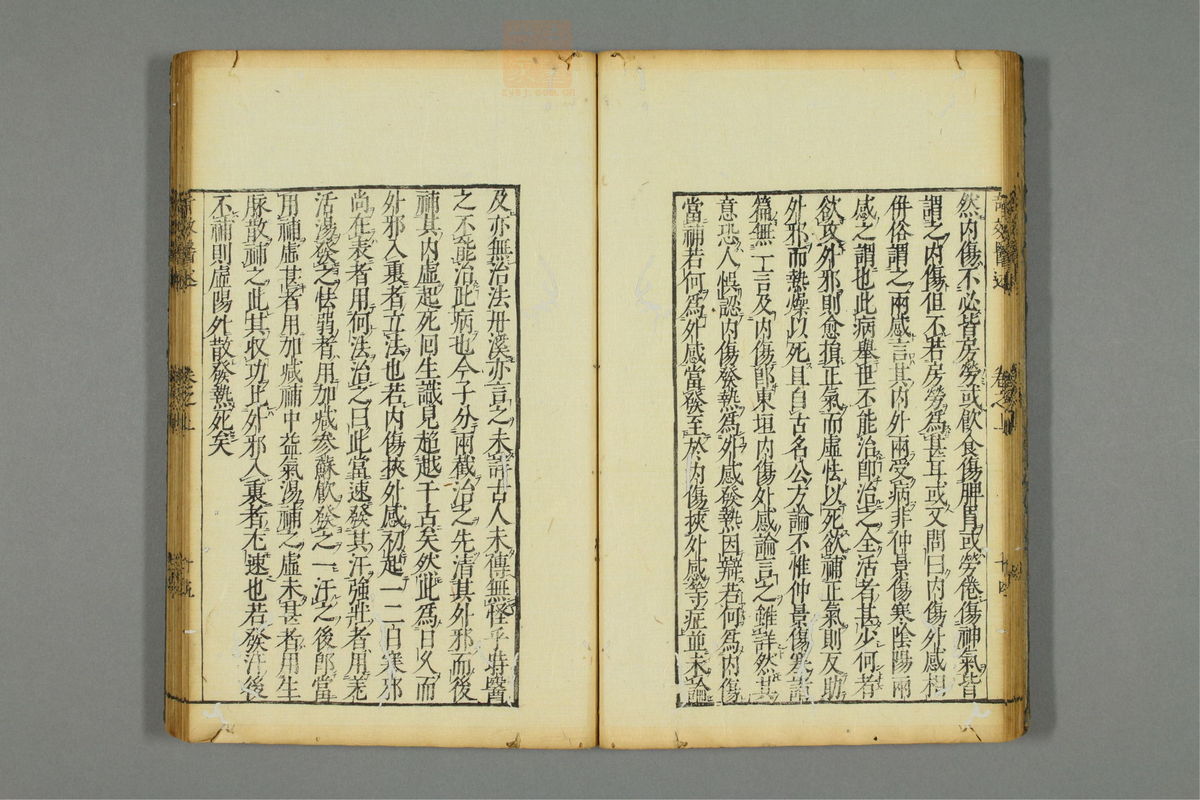 然内傷不必皆房勞或飲食傷脾胃或勞倦傷神氣皆
謂之内傷但不若房勞爲甚耳或又問曰内傷外感相
併俗謂之兩感言其内外兩受病非仲景傷寒陰陽兩
感之謂也此病舉世不能治卽治之全活者甚少何者
欲攻外邪則愈損正氣而虛怯以死欲補正氣則反助
外邪而熱燥以死且自古名公方論不惟仲景傷寒諸
篇無一言及内傷卽東垣内傷外感論言之雖詳然其
意恐人悞認内傷發熱爲外感發熱因辯若何爲内傷
當補若何爲外感當發至於内傷挾外感等症並未論
及亦無治法丹溪亦言之未詳古人未傳無怪乎時醫
之不能治此病也今子分兩截治之先清其外邪而後
補其内虛起死回生識見超越千古矣然此爲日久而
外邪入裏者立法也若内傷挾外感初起一二日寒邪
尚在表者用何法治之曰此當速發其汗強壯者用羌
活湯發之怯弱者用加減參蘇飲發之一汗之後卽當
用補虛甚者用加減補中益氣湯補之虛未甚者用生
脉散補之此其收功比外邪入裏者尤速也若發汗後
不補則虛陽外散發熱死矣
卷之上